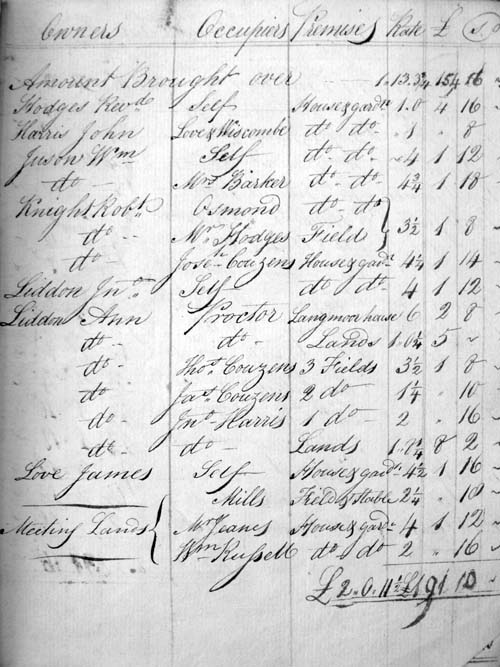 Owners Occupiers Premises Rate £ s
Amount Brought over 1.13.3¾ 154 16
Hodges Revd Self House & gardn 1.0 4 16
Harris John Love & Wiscombe do do 1 8
Juson Wm Self do do 4 1 12
do Mrs Barker do do 4¾ 1 18
Knight Robt Osmond do do
do Mr Hodges Field 3½ 1 8
do Josh Couzens House & gardn 4¼ 1 14
Liddon Jno Self do do 4 1 12
Liddon Ann Proctor Langmoor house 6 2 8
do do Lands 1.0¼ 5
do Thos Couzens 3 Fields 3½ 1 8
do Jas Couzens 2 do 1¼ 10
do Jno Harris 1 do 2 16
do do Lands 8 2
Love James Self House & gardn 4½ 1 16
Mills Field & Stable 2¼ 18
Meeting Lands Mr Jeanes House & gardn 4 1 12
Wm Russell do do 2 16
£ 2.0.11½ £191 10